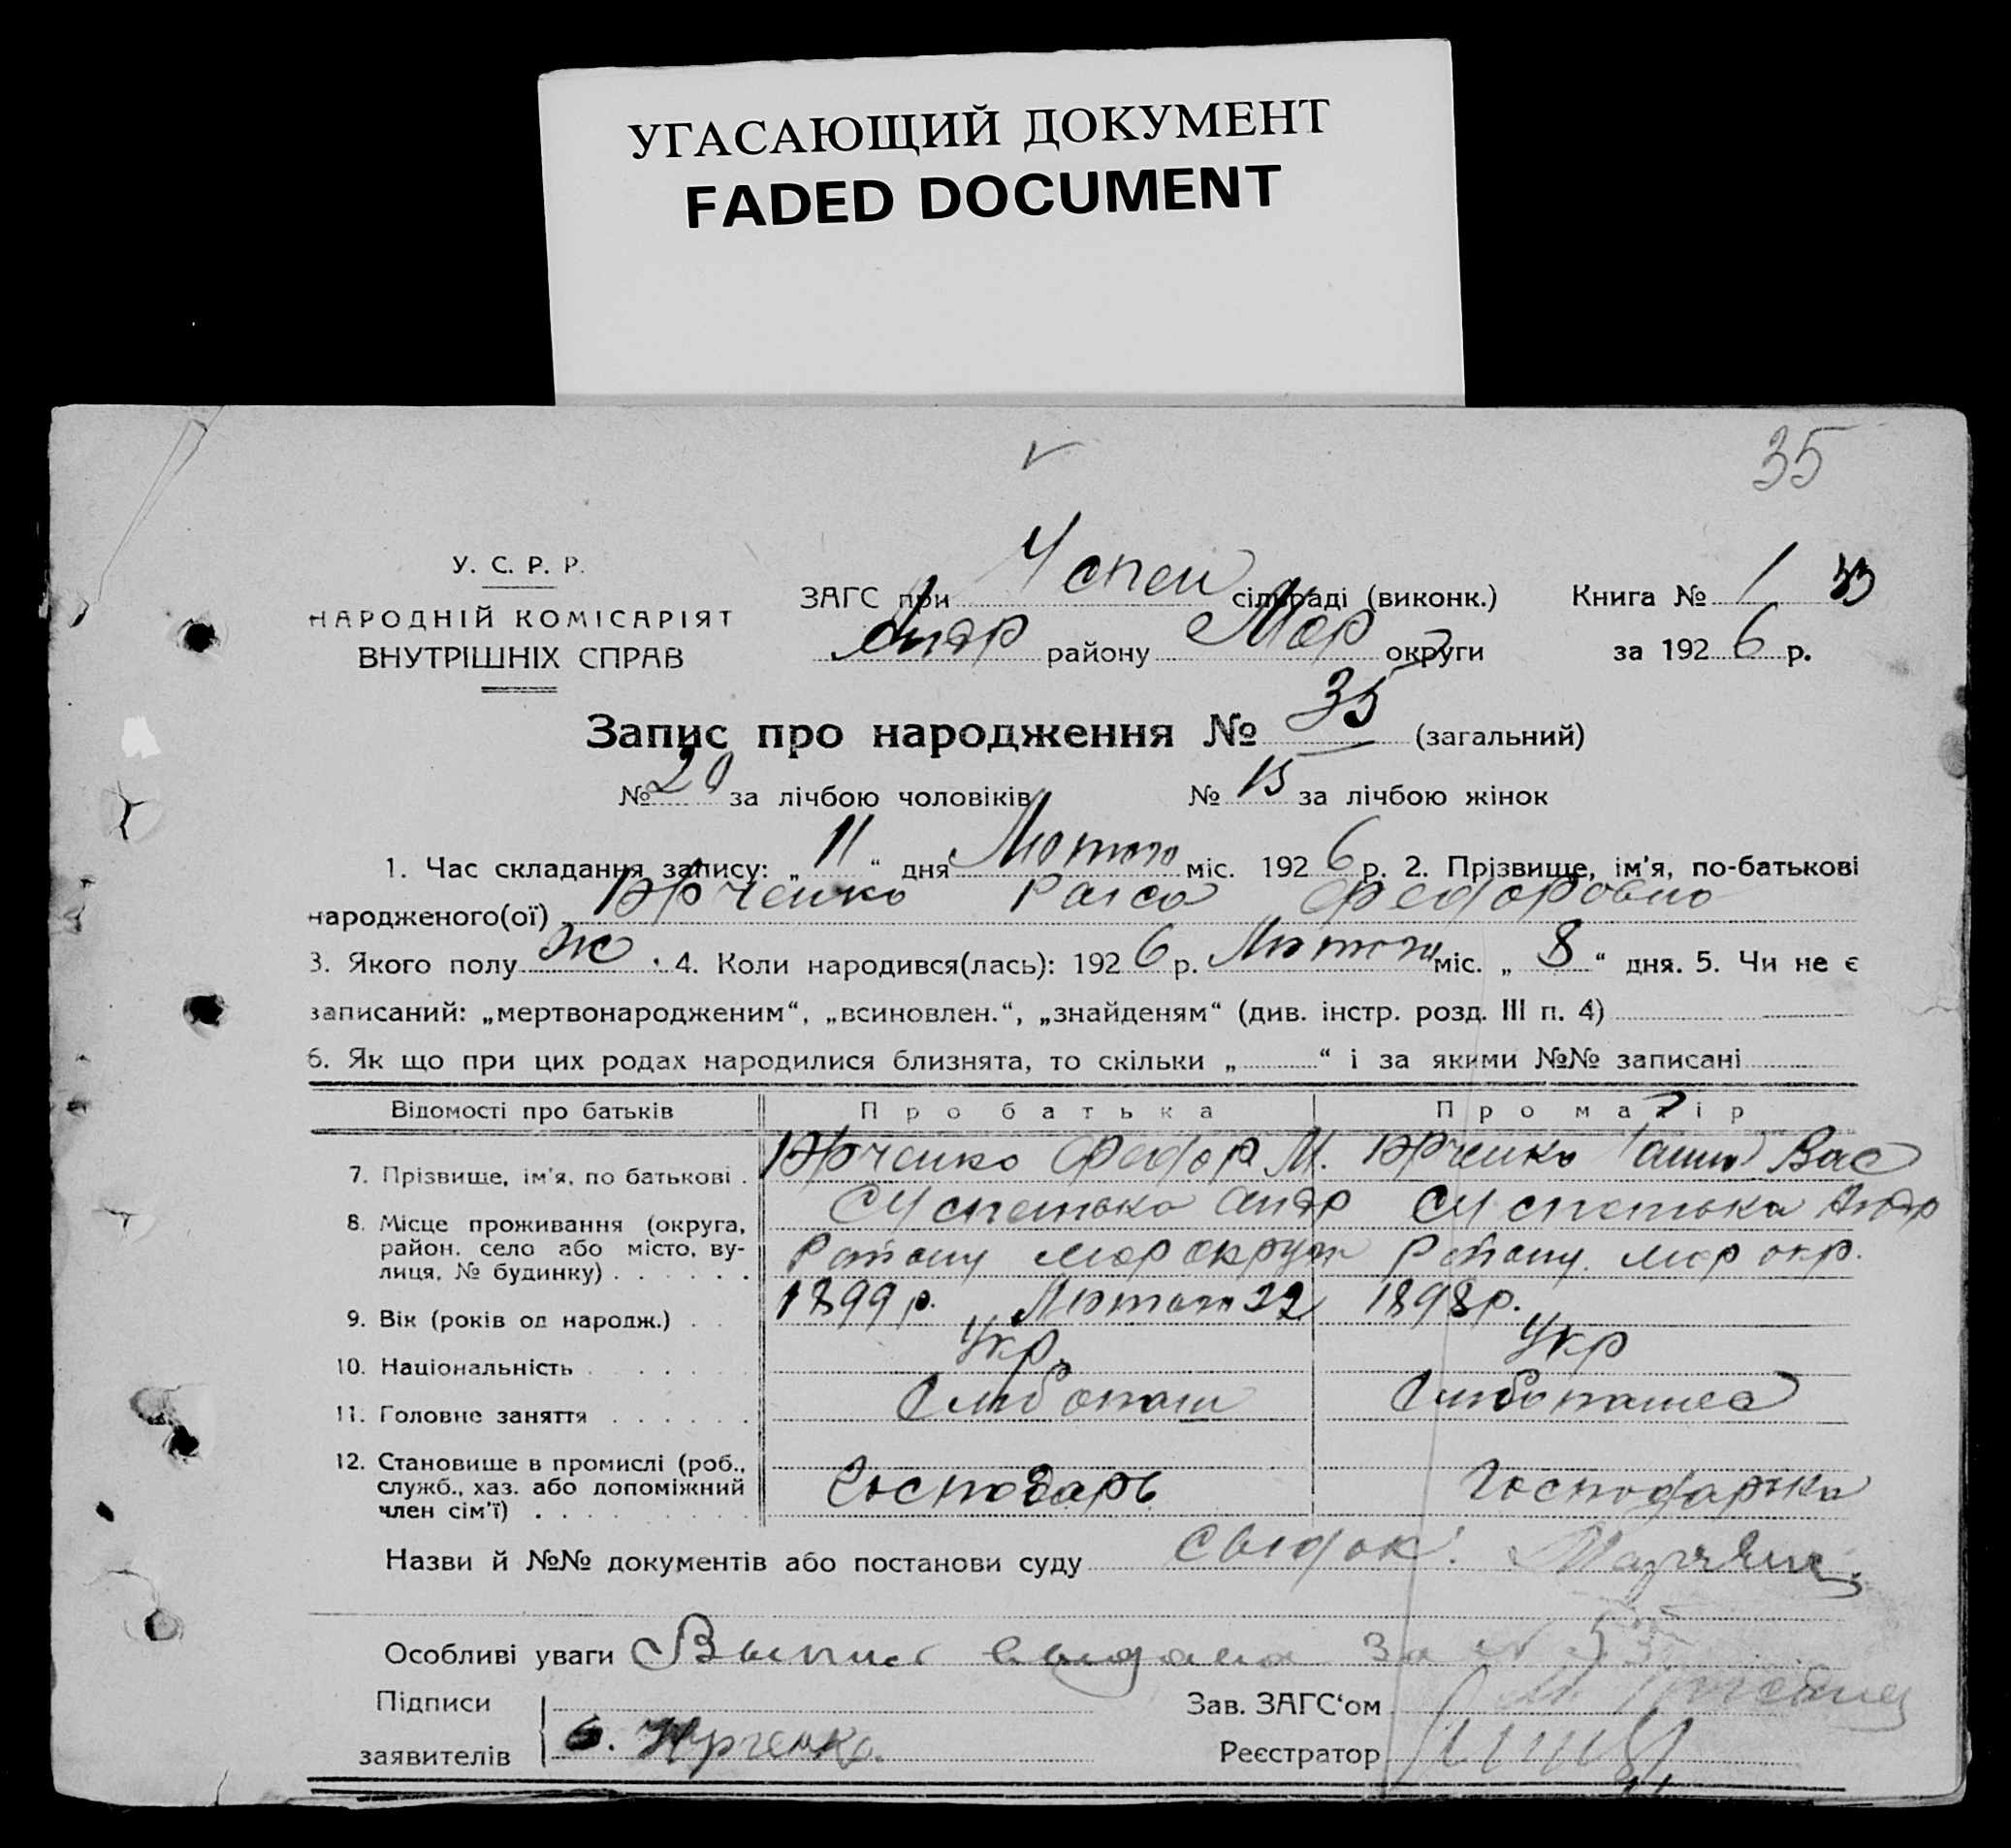 УГАСАЮЩИЙ ДОКУМЕНТ
FADED DOCUMENT
35
У. С. Р. Р.
НАРОДНІЙ КОМІСАРІЯТ
ВНУТРІШНІХ СПРАВ
ЗАГС при Успен сільраді (виконк.)
Андр району Мар округи
Книга № 1 33
за 1926 р.
Запис про народження № 35 (загальний)
№ 20 за лічбою чоловіків № 15 за лічбою жінок
1. Час складання запису: „ 11 “ дня Лютого міс. 1926 р. 2. Прізвище, ім'я, по-батькові
народженого(ої) Юрченко Раиса Федоровна
3. Якого полу Ж. 4. Коли народився(лась): 1926 р. Лютого міс. „ 8 “ дня. 5. Чи не є
записаний: „мертвонародженим“, „всиновлен.“, „знайденям“ (див. інстр. розд. III п. 4)
6. Як що при цих родах народилися близнята, то скільки „ “ і за якими №№ записані
Відомості про батьків Про батька Про матір
7. Прізвище, ім'я, по батькові . Юрченко Федор М. Юрченко Ганна Вас
8. Місце проживання (округа, район, село або місто, вулиця, № будинку) . . . . . .
Андр Андр
Району Мар округи Району Мар окр.
9. Вік (років од народж.) . . 1899 р. Лютого 22 1898 р.
10. Національність . . . . . Укр. Укр
11. Головне заняття . . . . . . Хлибопаш
12. Становище в промислі (роб., служб., хаз. або допоміжний член сім'ї) . . . . . . . . . Господарь Господарка
Назви й №№ документів або постанови суду
Особливі уваги Выпис выдана за № 5
Підписи
заявителів Юрченко.
Зав. ЗАГС‘ом
Реєстратор